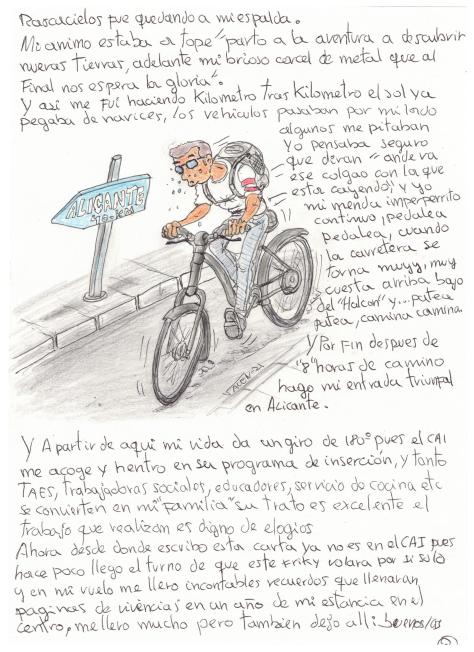 Rascacielos fue quedando a mi espalda.
Mi animo estaba a tope "parto a la aventura a descubrir
nuevas tierras, adelante mi brioso corcel de metal que al
Final nos espera la gloria".
Y así me fuí haciendo kilometro tras Kilometro el sol ya
pegaba de narices, los vehículos pasaban por mi lado
algunos me pitaban
Yo pensaba seguro
que diran "andeva
ese colgao con la que
esta cayendo" y yo
mi menda imperrerito
continuo ¡pedalea
pedalea, cuando
la carretera se
torna muyy, muy
cuesta arriba bajo
del "Halcon" y... patea
patea, camina camina.
Y Por Fin despues de
"8" horas de camino
hago mi entrada triunfal
en Alicante.
ALICANTE
Y Apartir de aqui mi vida da un giro de 180º pues el CAI
me acoge y hentro en su programa de inserción, y tanto
TAES, trabajadoras sociales, educadores, servicio de cocina etc
se convierten en mi "Familia" su trato es excelente el
trabajo que realizan es digno de elogios
Ahora desde donde escribo esta carta ya no es en el CAI pues
hace poco llego el turno de que este Friky volara por si solo
y en mi vuelo me llevo incontables recuerdos que llenaran
paginas de vivencias en un año de mi estancia en el
centro, me llevo mucho pero también dejo allí buenos/as